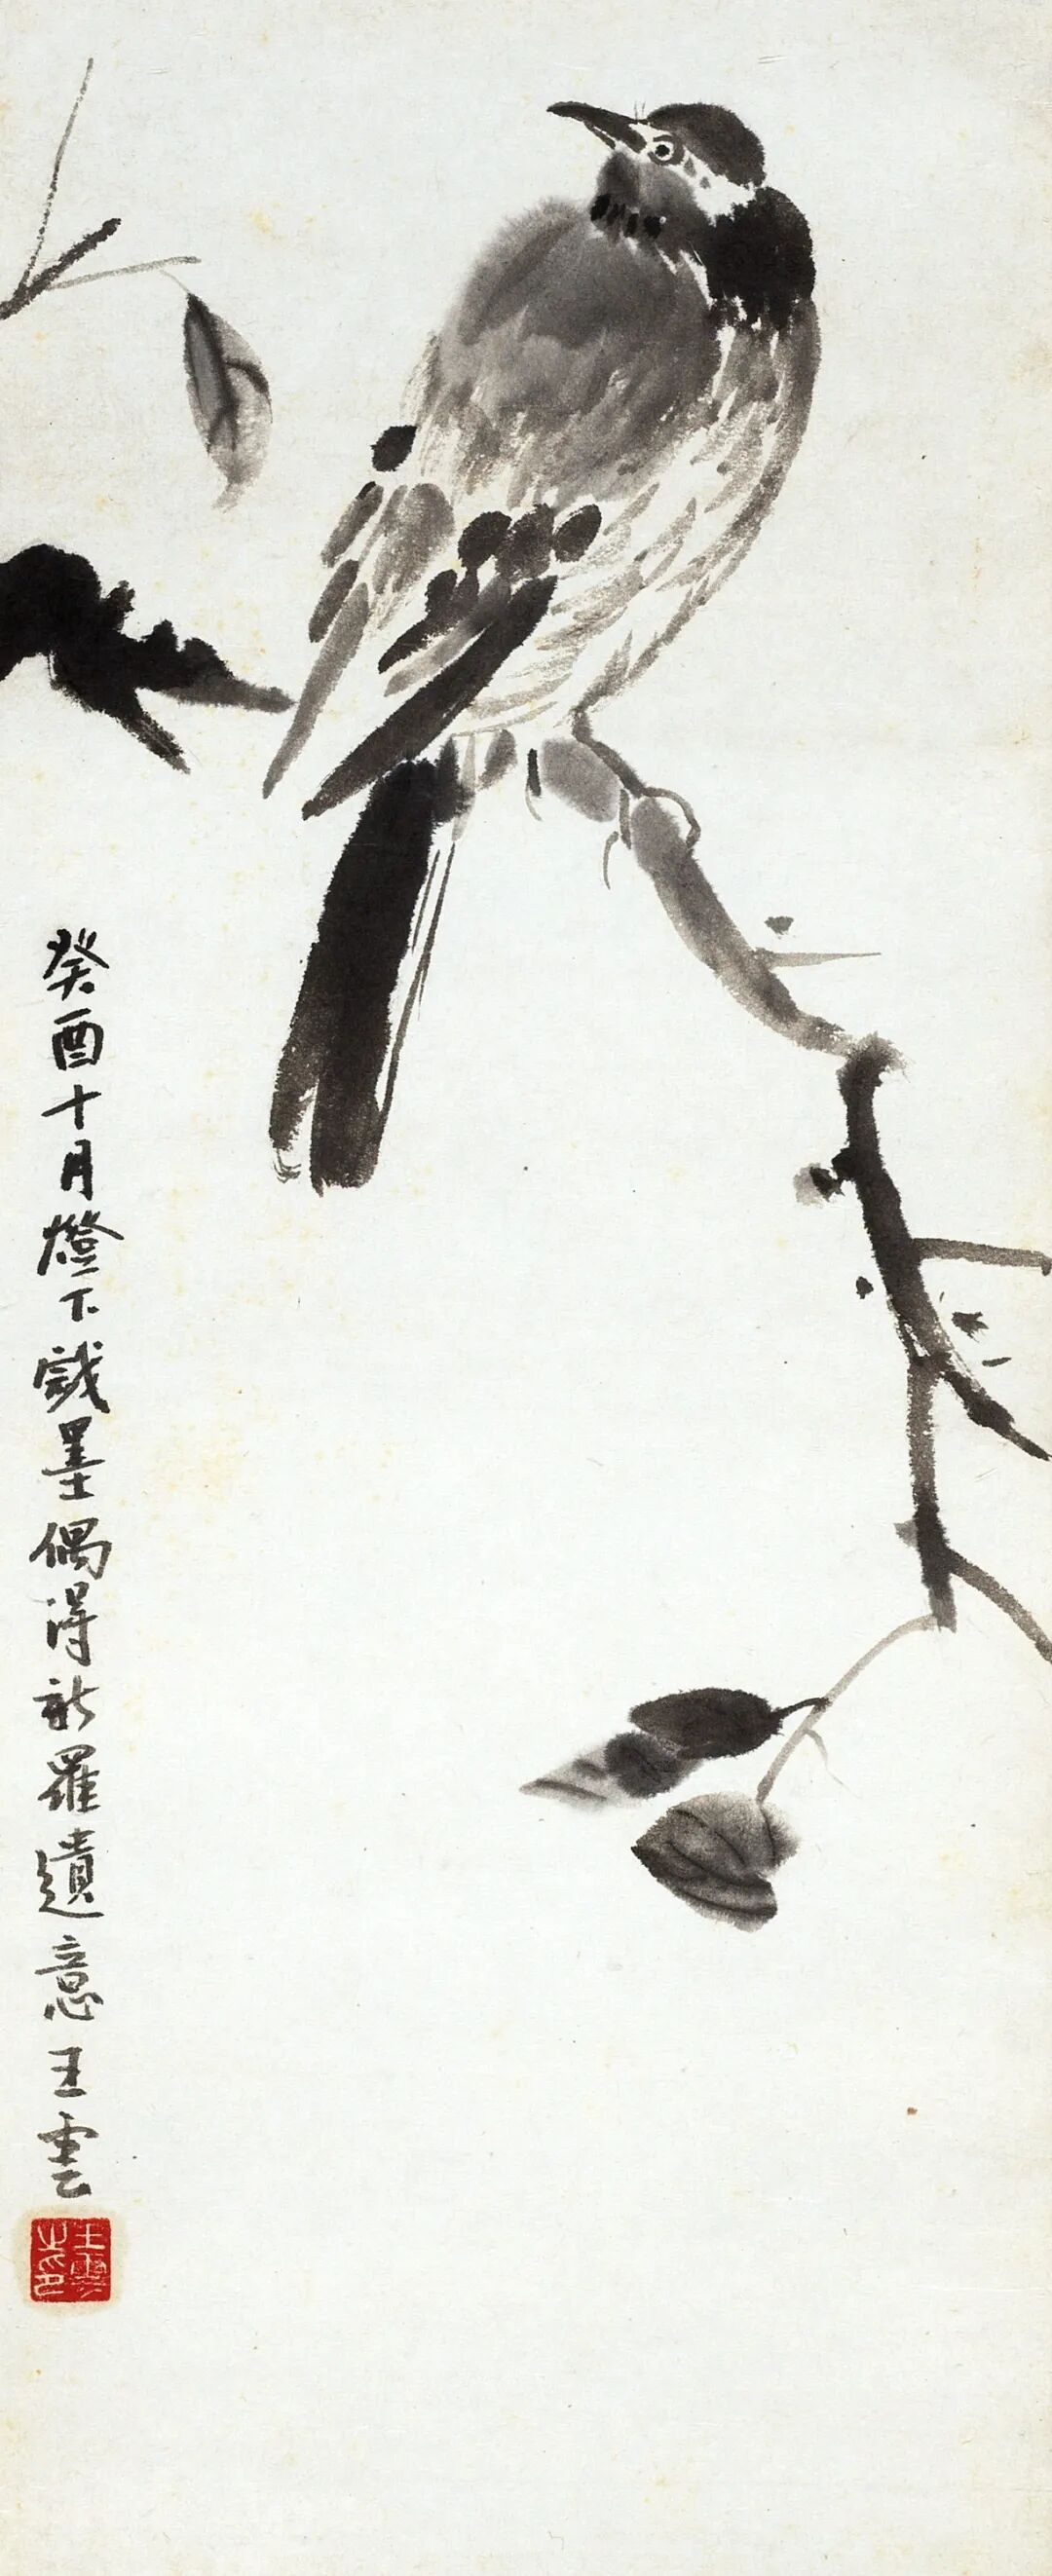 癸酉十月燈下戲墨偶得新羅遺意王雲
王雲之印